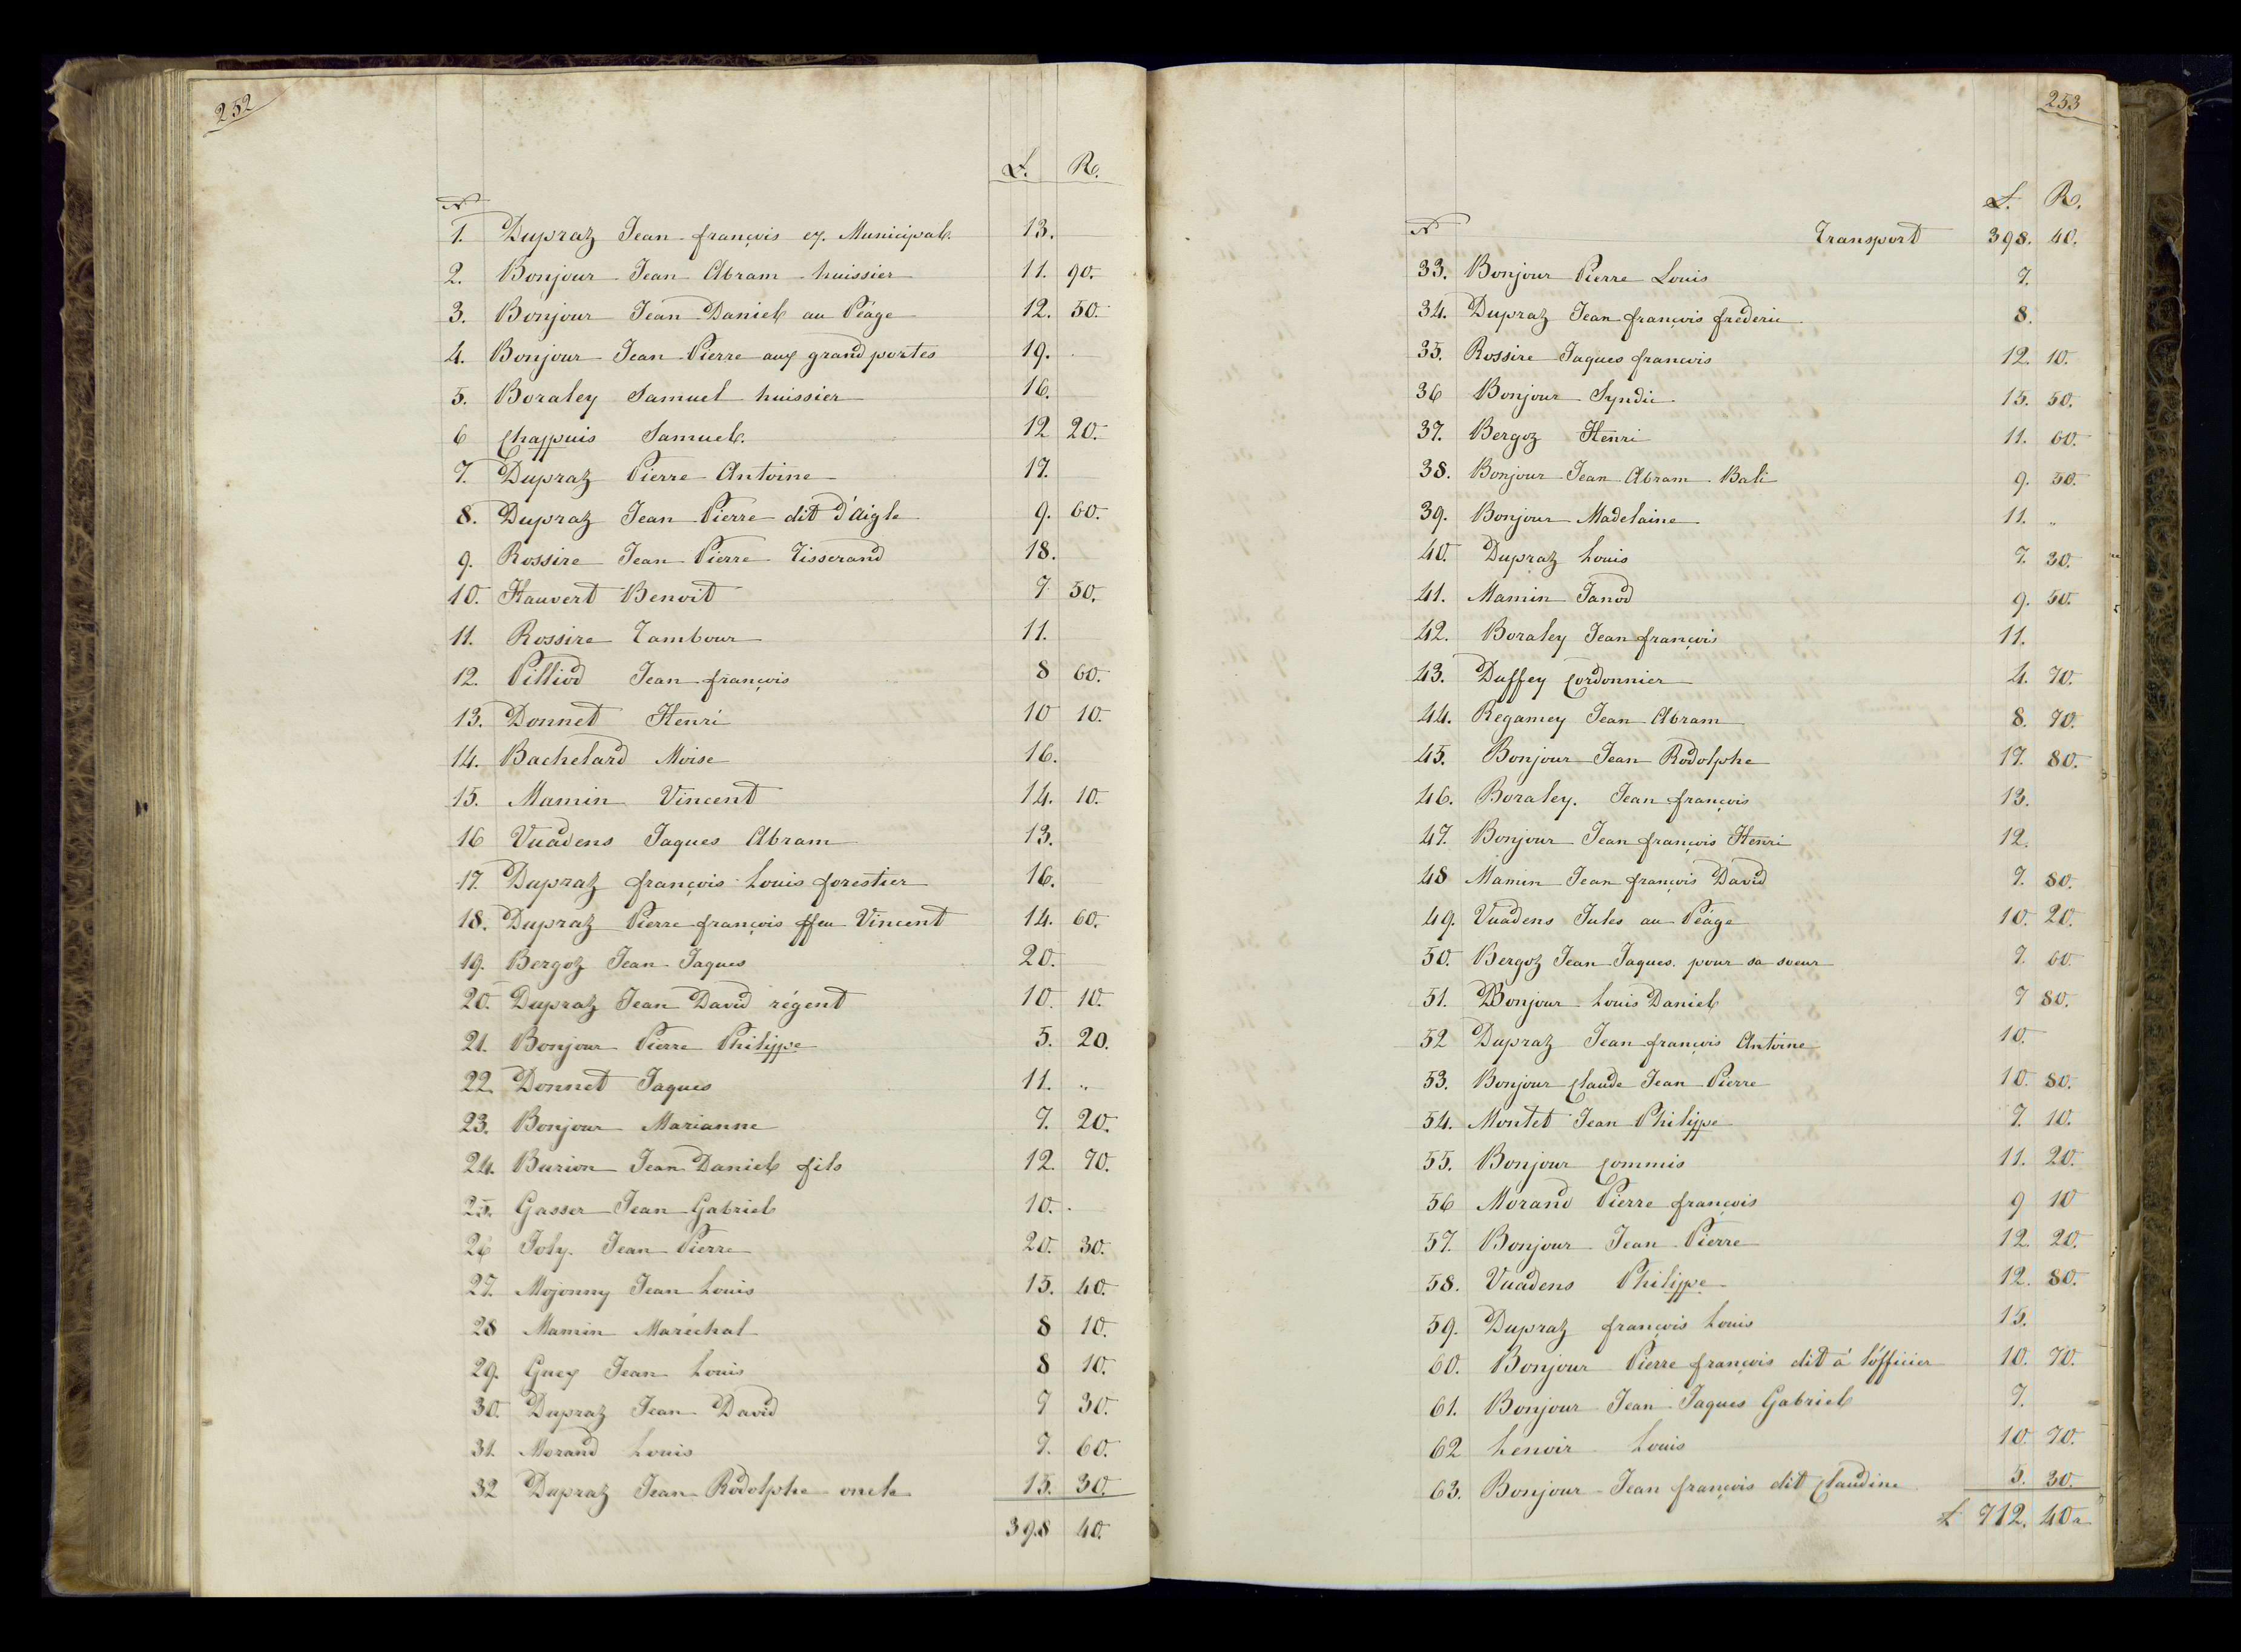 252
L. R.
N°
1. Dupraz Jean françois ex. Municipal. 13.
2. Bonjour Jean Abram huissier 11. 90.
3. Bonjour Jean Daniel au Péage 12. 50.
4. Bonjour Jean Pierre aux grand portes 19.
5. Boraley Samuel huissier 16.
6 Chappuis Samuel. 12 20.
7. Dupraz Pierre Antoine 17.
8. Dupraz Jean Pierre dit d'Aigle 9. 60.
9. Rossire Jean Pierre Tisserand 18.
10. Hauvert Benoit 7 50.
11. Rossire Tambour 11.
12. Pilliod Jean françois 8 60.
13. Donnet Henri 10 10.
14. Bachelard Moise 16.
15. Mamin Vincent 14. 10.
16 Vuadens Jaques Abram 13.
17. Dupraz françois Louis forestier 16.
18. Dupraz Pierre françois ffeu Vincent 14. 60.
19. Bergoz Jean Jaques 20.
20. Dupraz Jean David régent 10. 10.
21. Bonjour Pierre Philippe 5. 20.
22. Donnet Jaques 11. "
23. Bonjour Marianne 7. 20.
24. Burion Jean Daniel fils 12. 70.
25. Gasser Jean Gabriel 10.
26 Joly. Jean Pierre 20. 30.
27. Mojonny Jean Louis 15. 40.
28 Mamin Maréchal 8 10.
29. Guex Jean Louis 8 10.
30. Dupraz Jean David 7 30.
31. Morand Louis 7. 60.
32 Dupraz Jean Rodolphe oncle 15. 30.
398 40.
253
L. R.
N° Transport 398. 40.
33. Bonjour Pierre Louis 7.
34. Dupraz Jean françois frederic 8.
35. Rossire Jaques francois 12. 10.
36 Bonjour Syndic. 15. 50.
37. Bergoz Henri 11. 60.
38. Bonjour Jean Abram Bali 9. 50.
39. Bonjour Madelaine 11. "
40. Dupraz Louis 7. 30.
41. Mamin Janod 9. 50.
42. Boraley Jean françois 11.
43. Duffey Cordonnier 4. 70.
44. Regamey Jean Abram 8. 70.
45. Bonjour Jean Rodolphe 17. 80.
46. Boraley. Jean françois 13.
47. Bonjour Jean françois Henri 12.
48 Mamin Jean françois David 7. 80.
49. Vuadens Jules au Péage 10. 20.
50. Bergoz Jean Jaques. pour sa soeur 7. 60
51. Bonjour Louis Daniel 7 80.
52 Dupraz Jean françois Antoine 10.
53. Bonjour Claude Jean Pierre 10. 80.
54. Montet Jean Philippe 7. 10.
55. Bonjour Commis 11. 20.
56 Morand Pierre françois 9 10
57. Bonjour Jean Pierre 12. 20.
58. Vuadens Philippe 12. 80.
59. Dupraz françois Louis 15.
60. Bonjour Pierre françois dit à l'officier 10. 70.
61. Bonjour Jean Jaques Gabriel 7.
62 Lenoir Louis 10. 70.
63. Bonjour Jean françois dit Claudine 5. 30.
L 712. 40